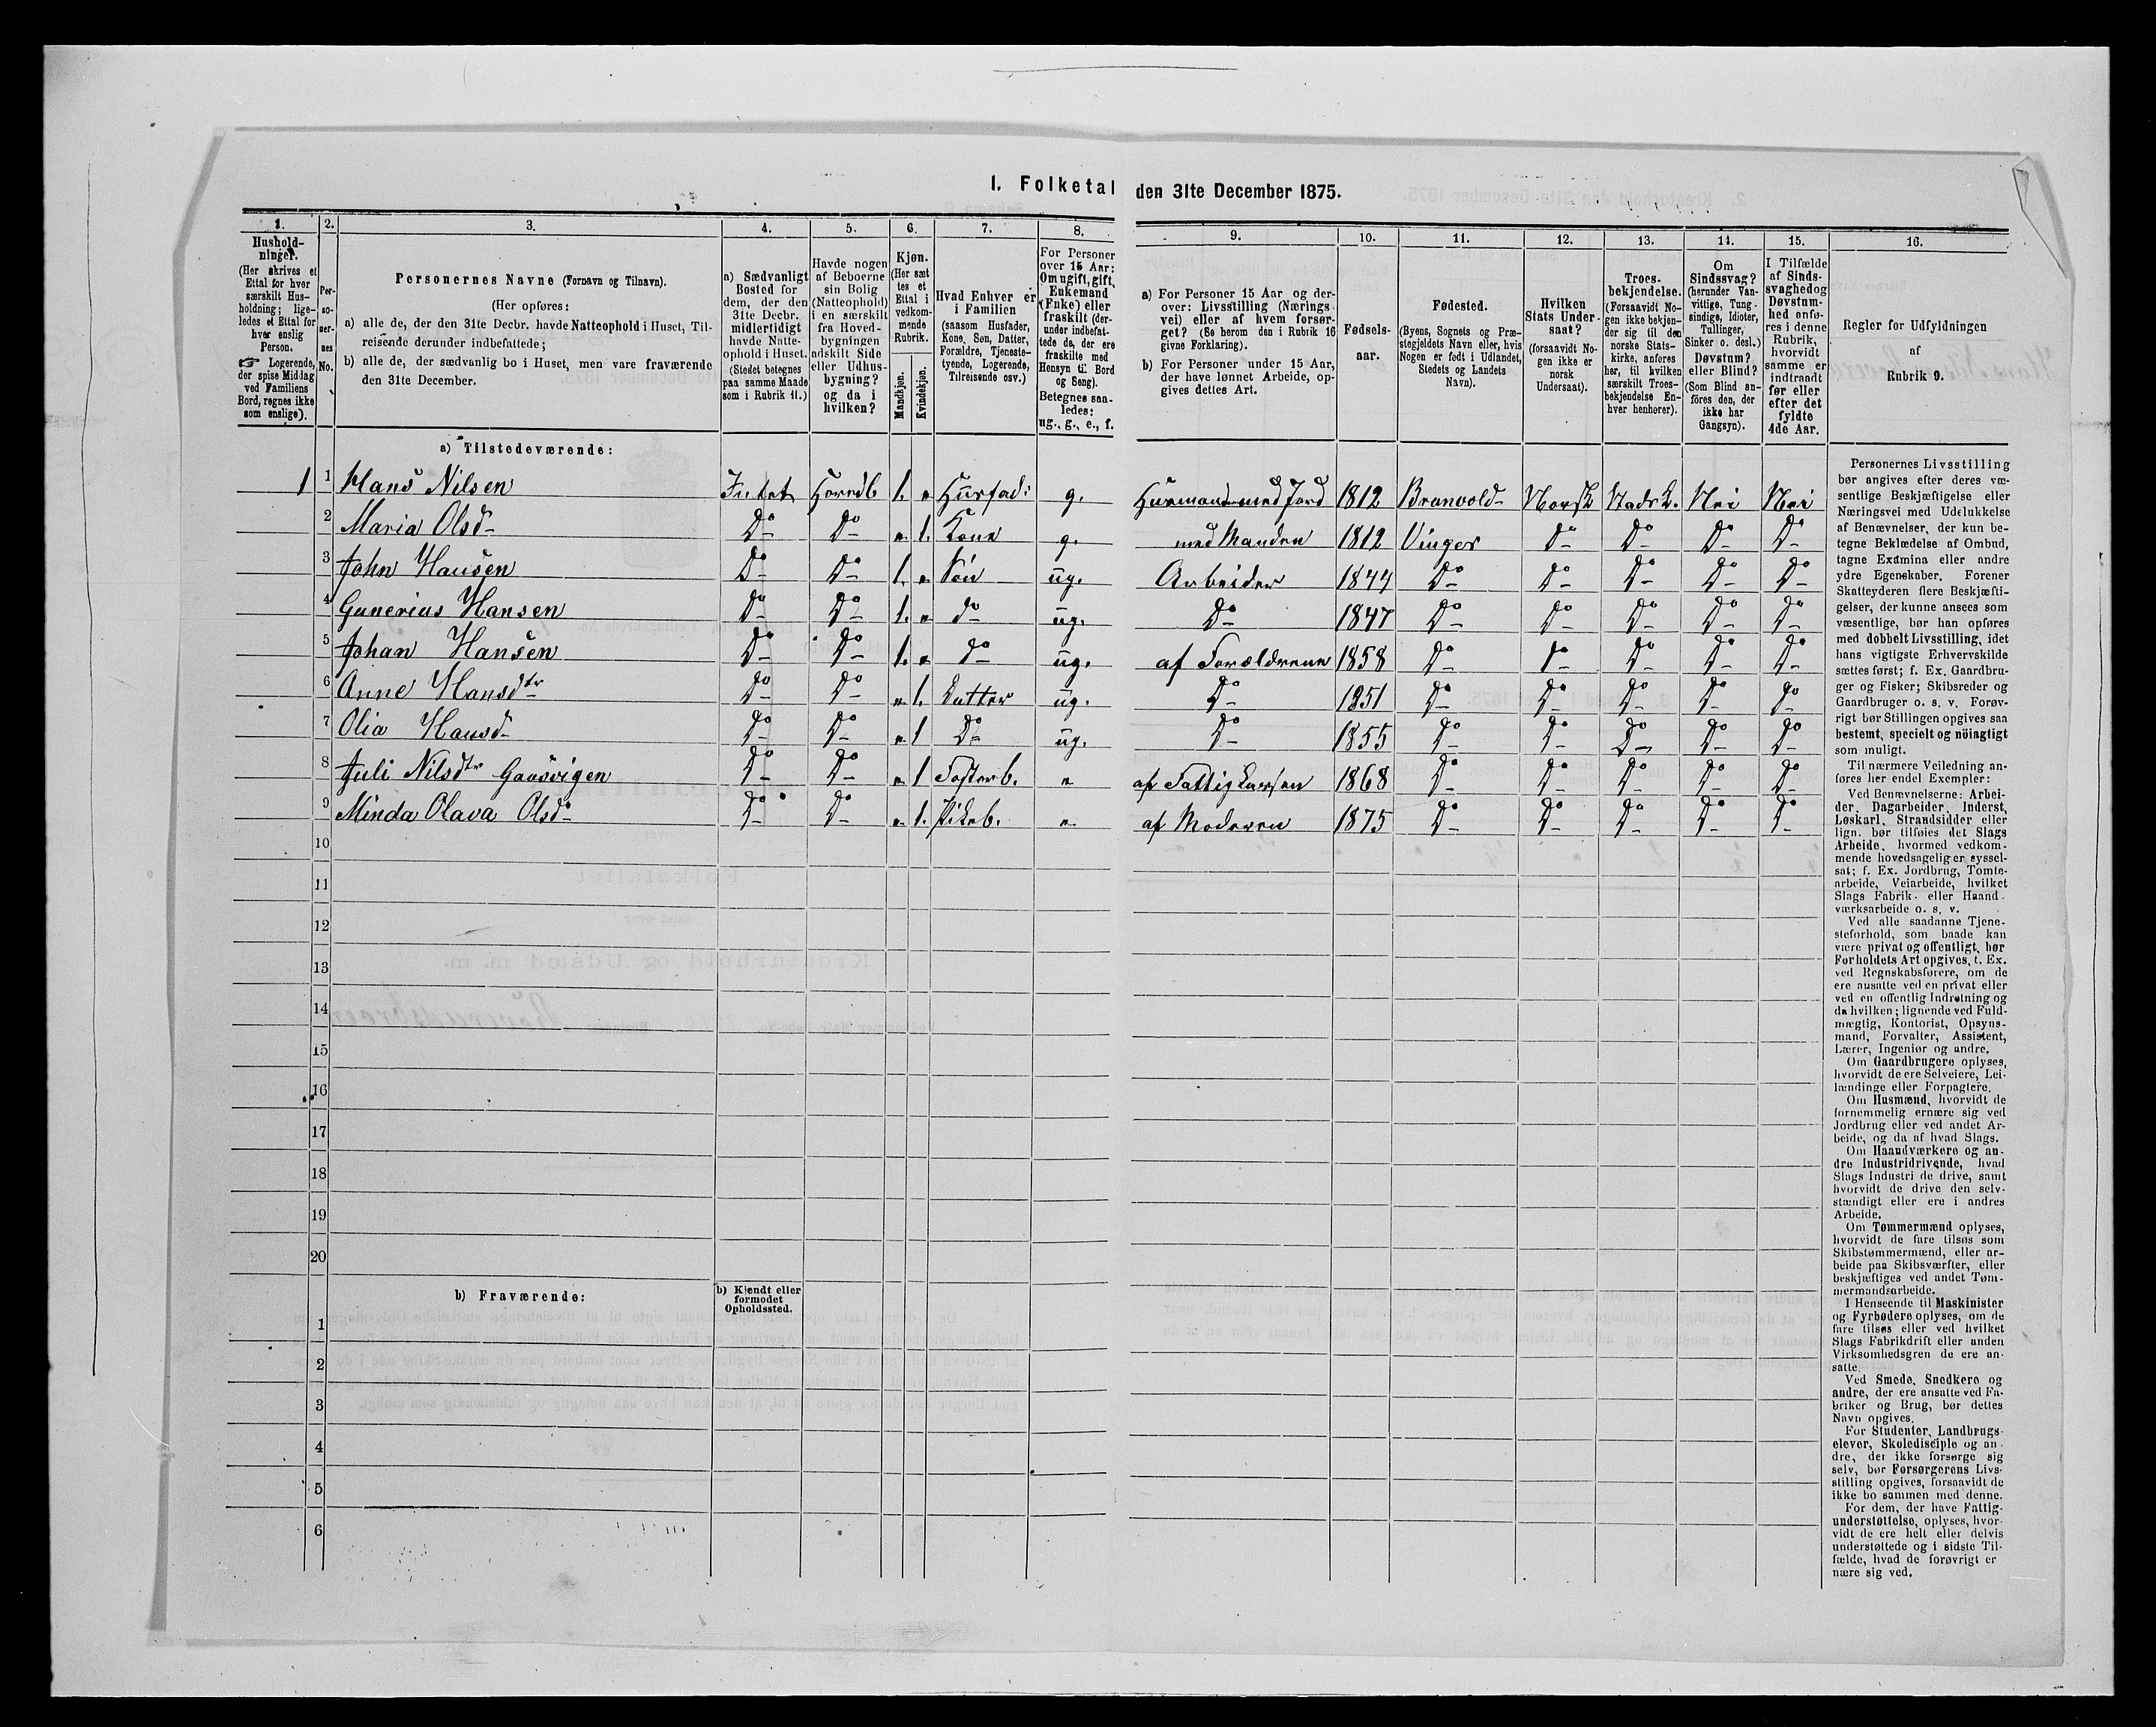 I. Folketal den 31te December 1875.
1. 2. 3. 4. 5. 6. 7. 8. 9. 10. 11. 12. 13. 14. 15. 16.
Hushold-
ninger.
(Her skrives et
Ettal for hver
særskilt Hus-
holdning; lige-
ledes et Ettal for
hver enslig
Person.
☞ Logerende,
der spise Middag
ved Familiens
Bord, regnes ikke
som enslige).
Per-
so-
ner-
nes
No.
Personernes Navne (Fornavn og Tilnavn).
(Her opføres:
a) alle de, der den 31te Decbr. havde Natteophold i Huset, Til-
reisende derunder indbefattede;
b) alle de, der sædvanlig bo i Huset, men vare fraværende
den 31te December.
a) Sædvanligt
Bosted for
dem, der den
31te Decbr.
midlertidigt
havde Natte-
ophold i Huset.
(Stedet betegnes
paa samme Maade
som i Rubrik 11.)
Havde nogen
af Beboerne
sin Bolig
(Natteophold)
i en særskilt
fra Hoved-
bygningen
adskilt Side
eller Udhus-
bygning?
og da i
hvilken?
Kjøn.
(Her sæt
tes et
Ettal i
vedkom-
mende
Rubrik.
Mandkjøn.
Kvindekjøn.
Hvad Enhver er
i Familien
(saasom Husfader,
Kone, Søn, Datter,
Forældre, Tjeneste-
tyende, Logerende,
Tilreisende osv.)
For Personer
over 15 Aar:
Om ugift, gift,
Enkemand
(Enke) eller
fraskilt (der-
under indbefat-
tede de, der ere
fraskilte med
Hensyn til Bord
og Seng).
Betegnes saa-
ledes:
ug., g., e., f.
a) For Personer 15 Aar og der-
over: Livsstilling (Nærings-
vei) eller af hvem forsør-
get? (Se herom den i Rubrik 16
givne Forklaring).
b) For Personer under 15 Aar,
der have lønnet Arbeide, op-
gives dettes Art.
Fødsels-
aar.
Fødested.
(Byens, Sognets og Præ-
stegjeldets Navn eller, hvis
Nogen er født i Udlandet,
Stedets og Landets
Navn).
Hvilken
Stats Under-
saat?
(forsaavidt No-
gen ikke er
norsk
Undersaat).
Troes-
bekjendelse.
(Forsaavidt No-
gen ikke bekjen-
der sig til den
norske Stats-
kirke, anføres
her, til hvilken
særskilt Troes-
bekjendelse En-
hver henhører).
Om
Sindssvag?
(herunder Van-
vittige, Tung-
sindige, Idioter,
Tullinger,
Sinker o. desl.)
Døvstum?
eller Blind?
(Som Blind an-
føres den, der
ikke har
Gangsyn).
I Tilfælde
af Sinds-
svaghed og
Døvstum-
hed anfø-
res i denne
Rubrik,
hvorvidt
samme er
indtraadt
før eller
efter det
fyldte
4de Aar.
Regler for Udfyldningen
af
Rubrik 9.
a) Tilstedeværende:
1 1 Hans Nilsen Intet Hovedb 1. " Husfad: g. Husmand med Jord 1812 Branvold Norsk Stadsk. Nei Nei
2 Maria Olsd Do Do " 1. Kone g. med Manden 1812 Vinger Do Do Do Do
3 John Hansen Do Do 1. " Søn ug. Arbeider 1844 Do Do Do Do Do
4 Gunerius Hansen Do Do 1. " do ug. Do 1847 Do Do Do Do Do
5 Johan Hansen Do Do 1. " do ug. af Forældrene 1858 Do Do Do Do Do
6 Anne Hansdtr Do Do " 1. Datter ug. Do 1851 Do Do Do Do Do
7 Olia Hansd Do Do " 1 Do ug. Do 1855 Do Do Do Do Do
8 Juli Nilsdtr Gaasvigen Do Do " 1 Fosterb. " af Fattigkassen 1868 Do Do Do Do Do
9 Minda Olava Olsd Do Do " 1. Pikeb. " af Moderen 1875 Do Do Do Do Do
10
11
12
13
14
15
16
17
18
19
20
b) Fraværende:
b) Kjendt eller
formodet
Opholdssted.
1
2
3
4
5
6
Personernes Livsstilling
bør angives efter deres væ-
sentlige Beskjæftigelse eller
Næringsvei med Udelukkelse
af Benævnelser, der kun be-
tegne Beklædelse af Ombud,
tagne Examina eller andre
ydre Egenskaber. Forener
Skatteyderen flere Beskjæfti-
gelser, der kunne ansees som
væsentlige, bør han opføres
med dobbelt Livsstilling, idet
hans vigtigste Erhvervskilde
sættes først; f. Ex. Gaardbru-
ger og Fisker; Skibsreder og
Gaardbruger o. s. v. Forøv-
rigt bør Stillingen opgives saa
bestemt, specielt og nöiagtigt
som muligt.
Til nærmere Veiledning an-
føres her endel Exempler:
Ved Benævnelserne: Arbei-
der, Dagarbeider, Inderst,
Løskarl, Strandsidder eller
lign. bør tilføies det Slags
Arbeide, hvormed vedkom-
mende hovedsagelig er syssel-
sat; f. Ex. Jordbrug, Tomte-
arbeide, Veiarbeide, hvilket
Slags Fabrik- eller Haand-
værksarbeide o. s. v.
Ved alle saadanne Tjene-
steforhold, som baade kan
være privat og offentligt, bør
Forholdets Art opgives, t. Ex.
ved Regnskabsførere, om de
ere ansatte ved en privat eller
ved en offentlig Indretning og
da hvilken; lignende ved Fuld-
mægtig, Kontorist, Opsyns-
mand, Forvalter, Assistent,
Lærer, Ingeniør og andre.
Om Gaardbrugere oplyses,
hvorvidt de ere Selveiere, Lei-
lændinge eller Forpagtere.
Om Husmænd, hvorvidt de
fornemmelig ernære sig ved
Jordbrug eller ved andet Ar-
beide, og da af hvad Slags.
Om Haandværkere og an-
dre Industridrivende, hvad
Slags Industri de drive, samt
hvorvidt de drive den selv-
stændigt eller ere i andres
Arbeide.
Om Tømmermænd oplyses,
hvorvidt de fare tilsøs som
Skibstømmermænd, eller ar-
beide paa Skibsværfter, eller
beskjæftiges ved andet Tøm-
mermandsarbeide.
I Henseende til Maskinister
og Fyrbødere oplyses, om de
fare tilsøs eller ved hvilket
Slags Fabrikdrift eller anden
Virksomhedsgren de ere an-
satte.
Ved Smede, Snedkere og
andre, der ere ansatte ved Fa-
briker og Brug, bør dettes
Navn opgives.
For Studenter, Landbrugs-
elever, Skoledisciple og an-
dre, der ikke forsørge sig
selv, bør Forsørgerens Livs-
stilling opgives, forsaavidt de
ikke bo sammen med denne.
For dem, der have Fattig-
understøttelse, oplyses, hvor-
vidt de ere helt eller delvis
understøttede og i sidste Til-
fælde, hvad de forøvrigt er
nære sig ved.